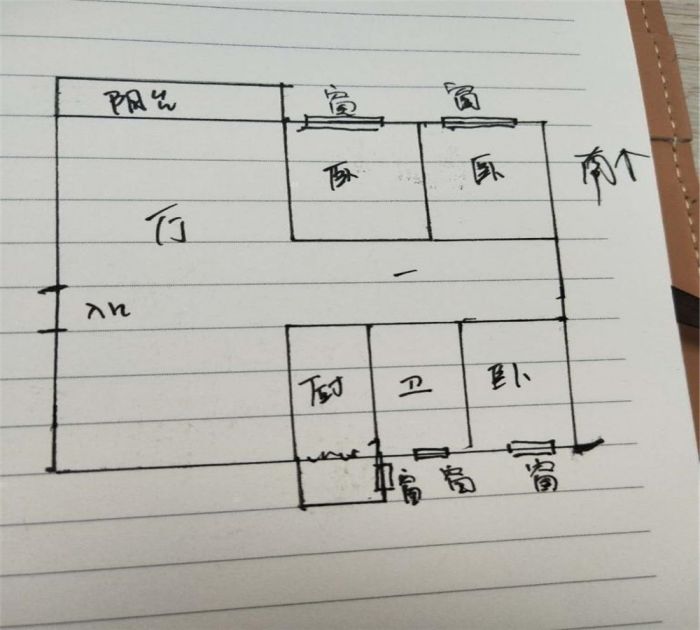 阳台
窗 窗
卧 卧 南个
厅
入口
厨 卫 卧
窗 窗 窗